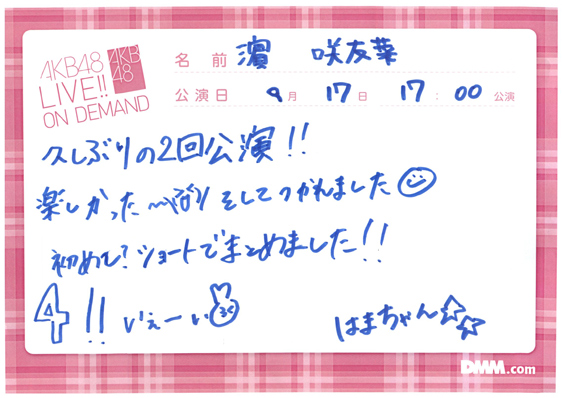 AKB48
LIVE!!
ON DEMAND
AKB
48
名前 濵 咲友菜
公演日 9月 17日 17:00 公演
久しぶりの2回公演!!
楽しかった〜 そしてつかれました
初めて?ショートでまとめました!!
4!! いぇーい
はまちゃん☆☆
DMM.com